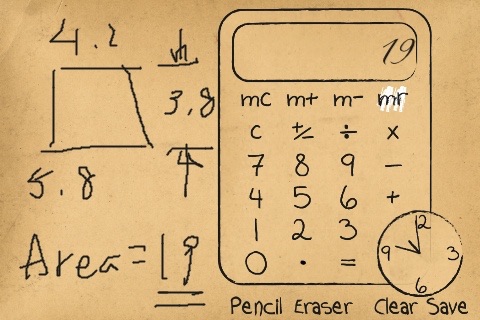 4.2
3,8
5,8
Area = 19
19
mc m+ m- mr
c +/- ÷ x
7 8 9 -
4 5 6 +
1 2 3
0 . =
12
9 3
6
Pencil Eraser Clear Save